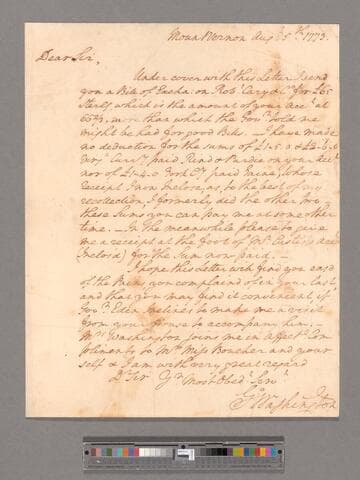 Mount Vernon Augt 5th 1773.
Dear Sir,
Under cover with this Letter I send
you a Bill of Exche: on Robt Cary & Co for £65
Sterlg, which is the amount of your Acct at
more than which the Govr told me
might be had for good Bills. — I have made
no deduction for the sums of £1.5.0 & £3.6.0
Curry paid Rind & Purdie on your Acct
nor of £1.4.0 paid mine, whose
Receipt I now Inclose, as, to the best of my
recollection I formerly did the other two;
these Sums you can pay me at some other
time. — In the meanwhile please to give
me a receipt at the foot of Mr Custis's acct
(Inclosd) for the Sum now paid. —
I hope this Letter will find you easd
of the Pain you complaind of in your last
and that you may find it convenient if
Govr Eden Inclines to make me a visit
from your House to accompany him. —
Mrs Washington joins me in Affecte Com
pliments to Mrs & Miss Boucher and your
self & I am with very great regard
Dr Sir Yr Most Obedt Servt
Go Washington